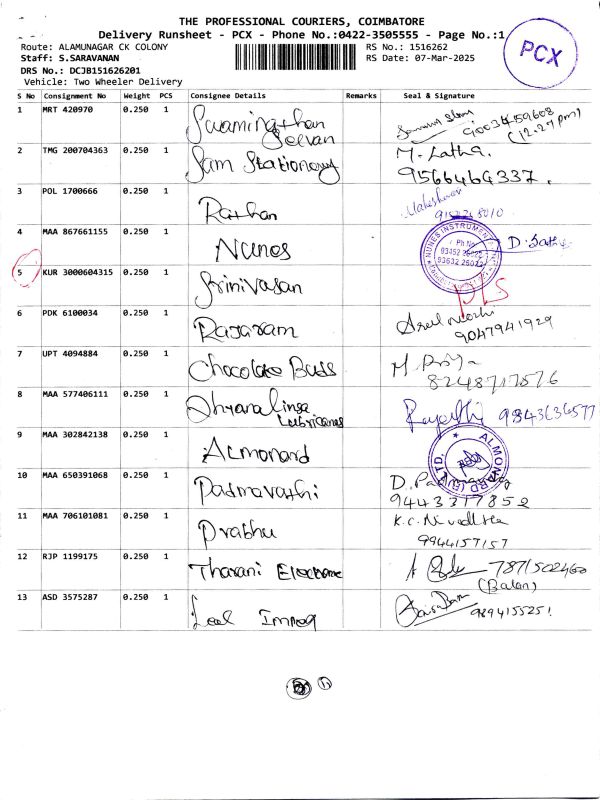 THE PROFESSIONAL COURIERS, COIMBATORE
Delivery Runsheet - PCX - Phone No.:0422-3505555 - Page No.:1
PCX
Route: ALAMUNAGAR CK COLONY
RS No.: 1516262
Staff: S.SARAVANAN
RS Date: 07-Mar-2025
DRS No.: DCJB151626201
Vehicle: Two Wheeler Delivery
S No Consignment No Weight PCS Consignee Details Remarks Seal & Signature
1 MRT 420970 0.250 1 Swaminathan
Jeevan 9003459608
(12.27pm)
2 TMG 200704363 0.250 1 Sam Stationary M. Latha.
9566464337.
3 POL 1700666 0.250 1 Rathan Maheshwari
4 MAA 867661155 0.250 1 Nunes NUNES INSTRUMENTS
Ph.No
5 KUR 3000604315 0.250 1 Srinivasan
6 PDK 6100034 0.250 1 Rajaram
9047941929
7 UPT 4094884 0.250 1 Chocolate Buds M. Priya
8248717576
8 MAA 577406111 0.250 1 Dhyanalinga
Lubricanes 9843636577
9 MAA 302842138 0.250 1 Almonard ALMONARD (P) LTD.
10 MAA 650391068 0.250 1 Padmavathi D.
9443317852
11 MAA 706101081 0.250 1 Prabhu K.C. Nivedhha
9944157157
12 RJP 1199175 0.250 1 Tharani Electronic 7871502460
(Balan)
13 ASD 3575287 0.250 1 Leel Impeq 9894155251